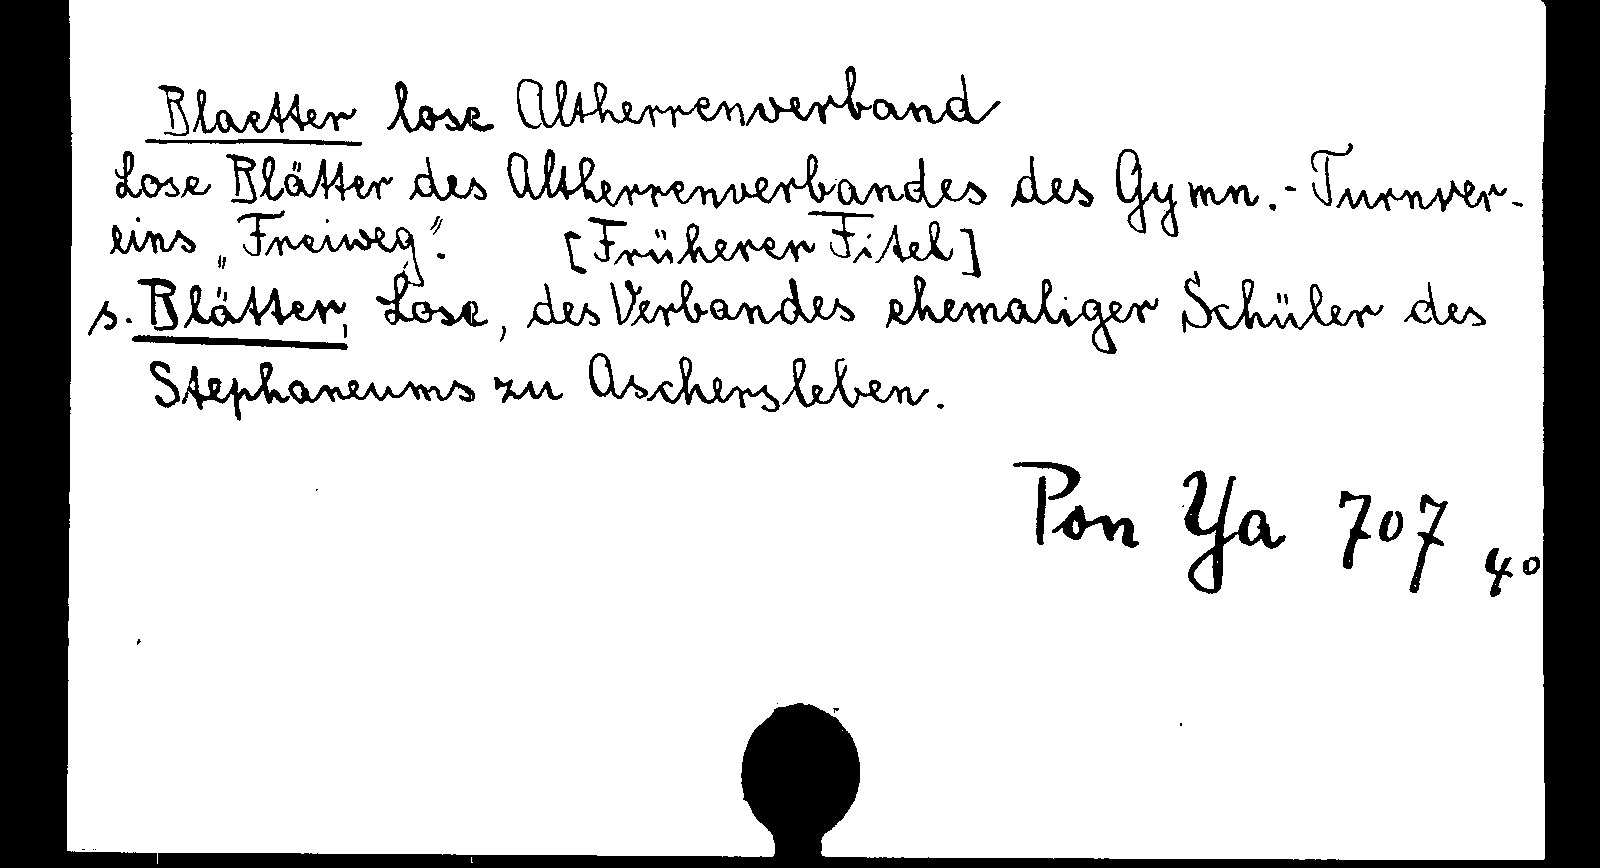 Blaetter lose Altherrenverband
Lose Blätter des Altherrenverbandes des Gymn.-Turnver-
eins „Freiweg“. [Früherer Titel]
s. Blätter, Lose, des Verbandes ehemaliger Schüler des
Stephaneums zu Aschersleben.
Pon Ya 707 4°